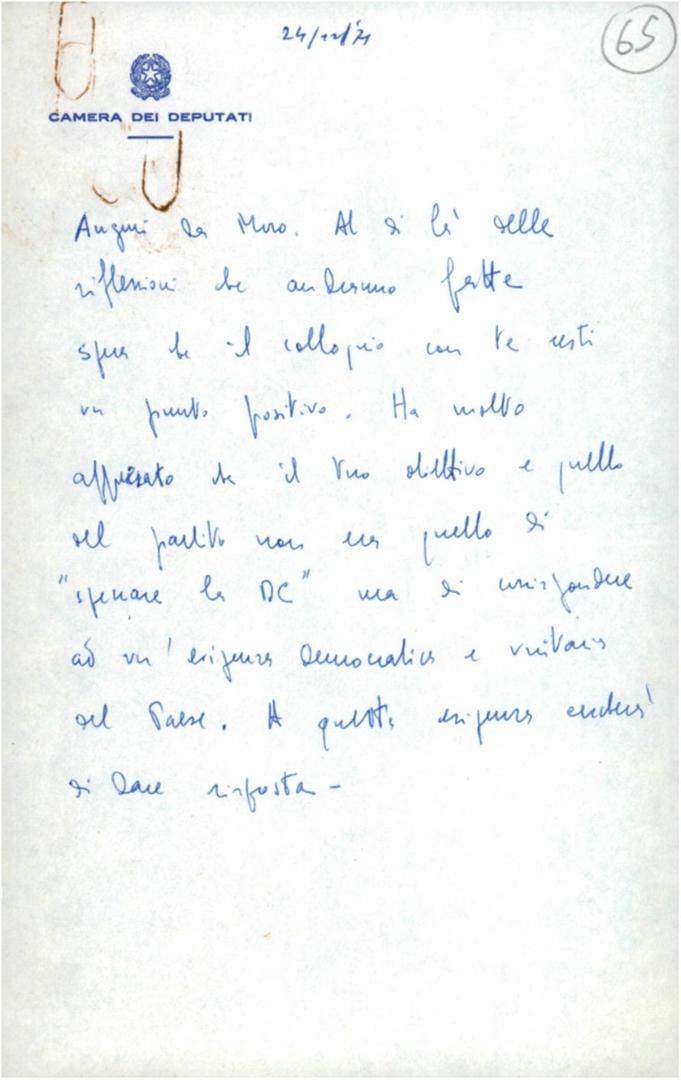 24/12/71
65
CAMERA DEI DEPUTATI
Auguri da Moro. Al di là delle
riflessioni che andranno fatte
spera che il colloquio con te resti
un punto positivo. Ha molto
apprezzato che il tuo obiettivo e quello
del partito non era quello di
"spaccare la DC" ma di corrispondere
ad un' esigenza democratica e unitaria
del Paese. A questa esigenza cercherà
di dare risposta -